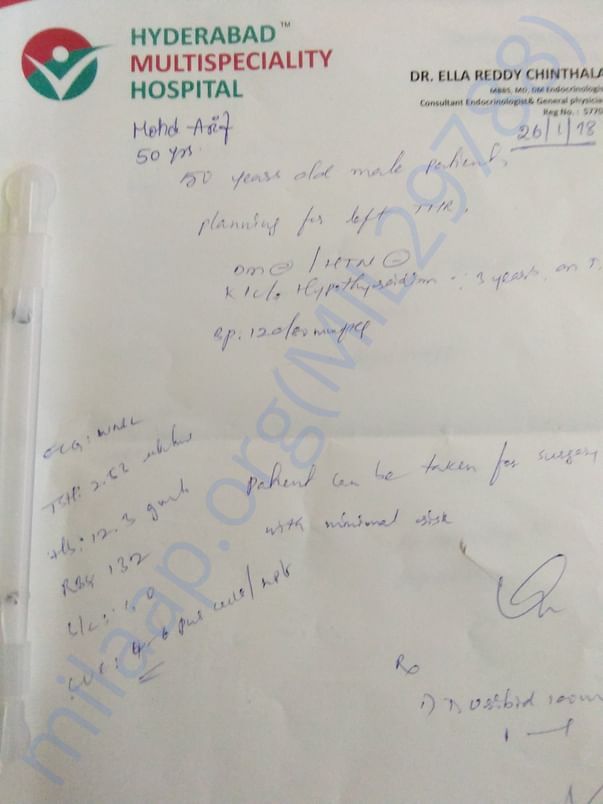 HYDERABAD
MULTISPECIALITY
HOSPITAL
TM
DR. ELLA REDDY CHINTHALA
MBBS, MD, DM Endocrinologis
Consultant Endocrinologist& General physicia
Reg No. : 5770
26/1/18
Mohd Arif
50 yrs.
50 years old male patient,
planning for left THR.
DM ⊖ / HTN ⊖
K/c/o Hypothyroidism 3 years, on T.
BP: 120/80 mmHg
ECG: WNL
TSH: 2.52
Hb: 12.3 gm%
RBS 132
S/c: 1.0
CUE: 4-6 pus cells/hpf
patient can be taken for surgery
with minimal risk
Rx
1) T.
milaap.org(MIL297898)